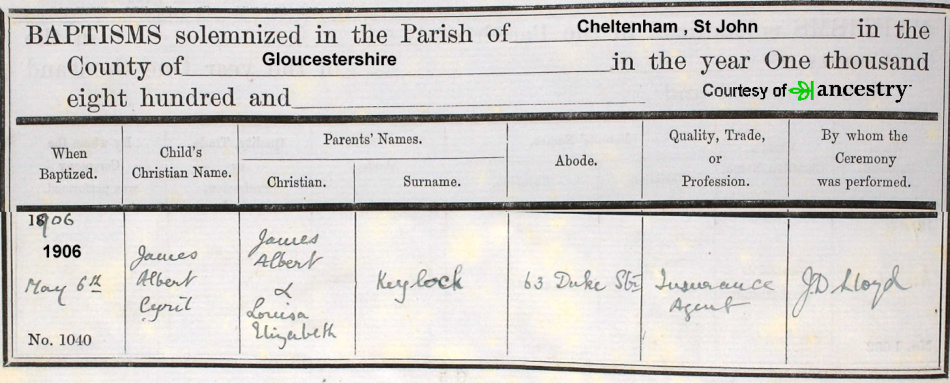 BAPTISMS solemnized in the Parish of Cheltenham , St John in the
County of Gloucestershire in the year One thousand
eight hundred and
Courtesy of ancestry
When Baptized.
Child's Christian Name.
Parents' Names.
Christian.
Surname.
Abode.
Quality, Trade, or Profession.
By whom the Ceremony was performed.
1906
1906
May 6th
No. 1040
James
Albert
Cyril
James
Albert
&
Louisa
Elizabeth
Keylock
63 Duke Str
Insurance
Agent
J.D. Lloyd